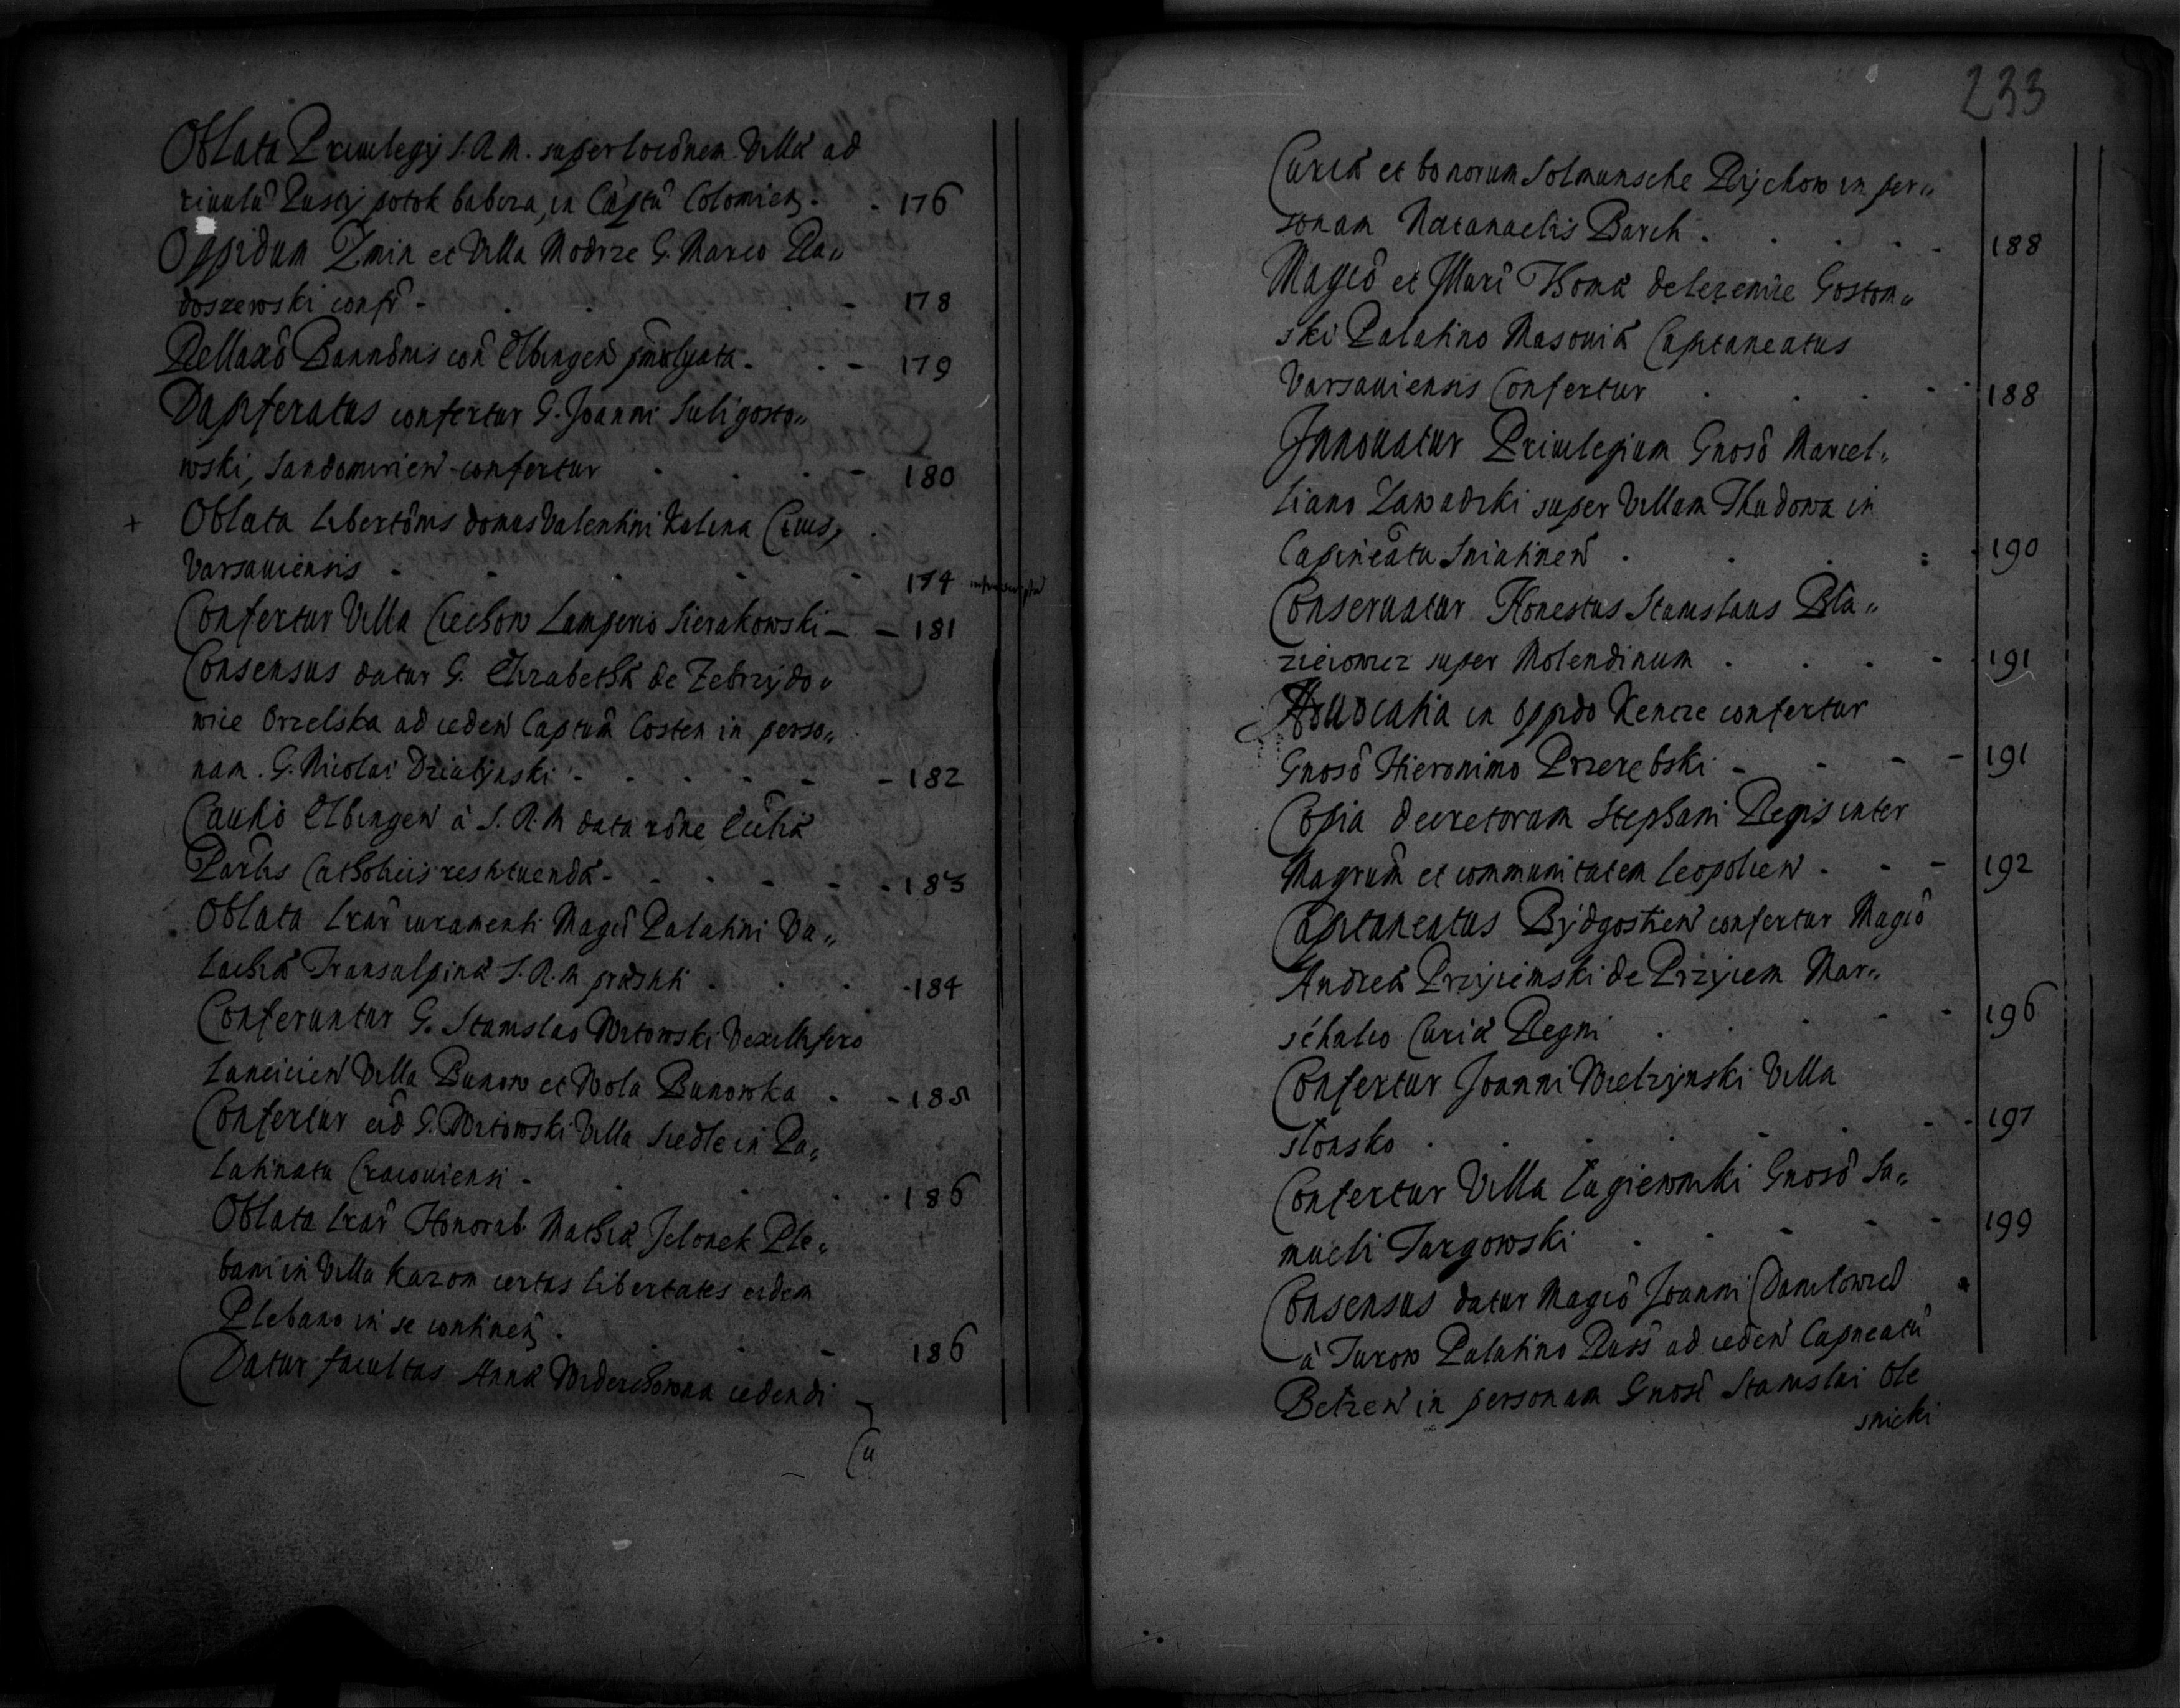 Oblata Priuilegij S. R. M. super locõnem Villæ ad
riuulũ Pusty potok babcza, in Captũ Colomien. 176
Oppidum Żnin et Villa Modrze G. Marco Ra„
doszewski confr̃ 178
Rellaxõ Bannõnis con Elbingeñ pmulgata 179
Dapiferatus confertur G. Joanni Suligosto„
wski, Sandomirieñ confertur 180
+ Oblata libertõnis domus Valentini Kalina Ciuis
Varsauiensis 174
Confertur Villa Ciechow Samperio Sierakowski 181
Consensus datur G. Elizabethæ de Zebrzydo„
wice Orzelska ad cedeñ Captũm Costen in perso„
nam G. Nicolai Dzialynski 182
Cautio Elbingeñ à S. R. M data rõne Eccliæ
Parlis Catholicis restituendæ 183
Oblata lrar̃ iuramenti Magci Palatini Va„
lachiæ Transalpinæ S. R. M præstiti 184
Conferuntur G. Stanislao Witowski Vexillifero
Lancicień Villa Bunow et Wola Bunowka 185
Confertur eid G. Witowski Villa Siedle in Pa„
latinatu Cracouiensi 186
Oblata lrar̃ Honorab. Mathiæ Jelonek Ple„
bani in Villa Kazom certas libertates eidem
Plebano in se contineñ 186
Datur facultas Annæ Widerchowna cedendi
Cu
233
Curiæ et bonorum Solmunsche Rychow in per„
sonam Natanaelis Barch 188
Magcõ et Illuri Thomæ de Lezenice Gostom„
ski Palatino Masouiæ Capitaneatus
Varsauiensis Confertur 188
Innouatur Priuilegium Gnosõ Marcel„
liano Zawadzki super Villam Thudowa in
Capineatu Sniatineñ 190
Conseruatur Honestus Stanislaus Bla„
zieiowicz super Molendinum 191
Aduocatia in oppido Kencze confertur
Gnosõ Hieronimo Przerębski 191
Copia decretorum Stephani Regis inter
Magrum̃ et communitatem Leopolieñ 192
Capitaneatus Bydgostieñ confertur Magcõ
Andreæ Przyiemski de Przyiem Mar„
schalco Curiæ Regni 196
Confertur Joanni Mielzynski Villa
Słonsko 197
Confertur Villa Łagiewniki Gnosõ Sa„
mueli Targowski 199
Consensus datur Magcõ Joanni Danilowicź
à Żurow Palatino Russ ad cedeñ Capneatũ
Belzeñ in personam Gnosi Stanislai Ole
snicki